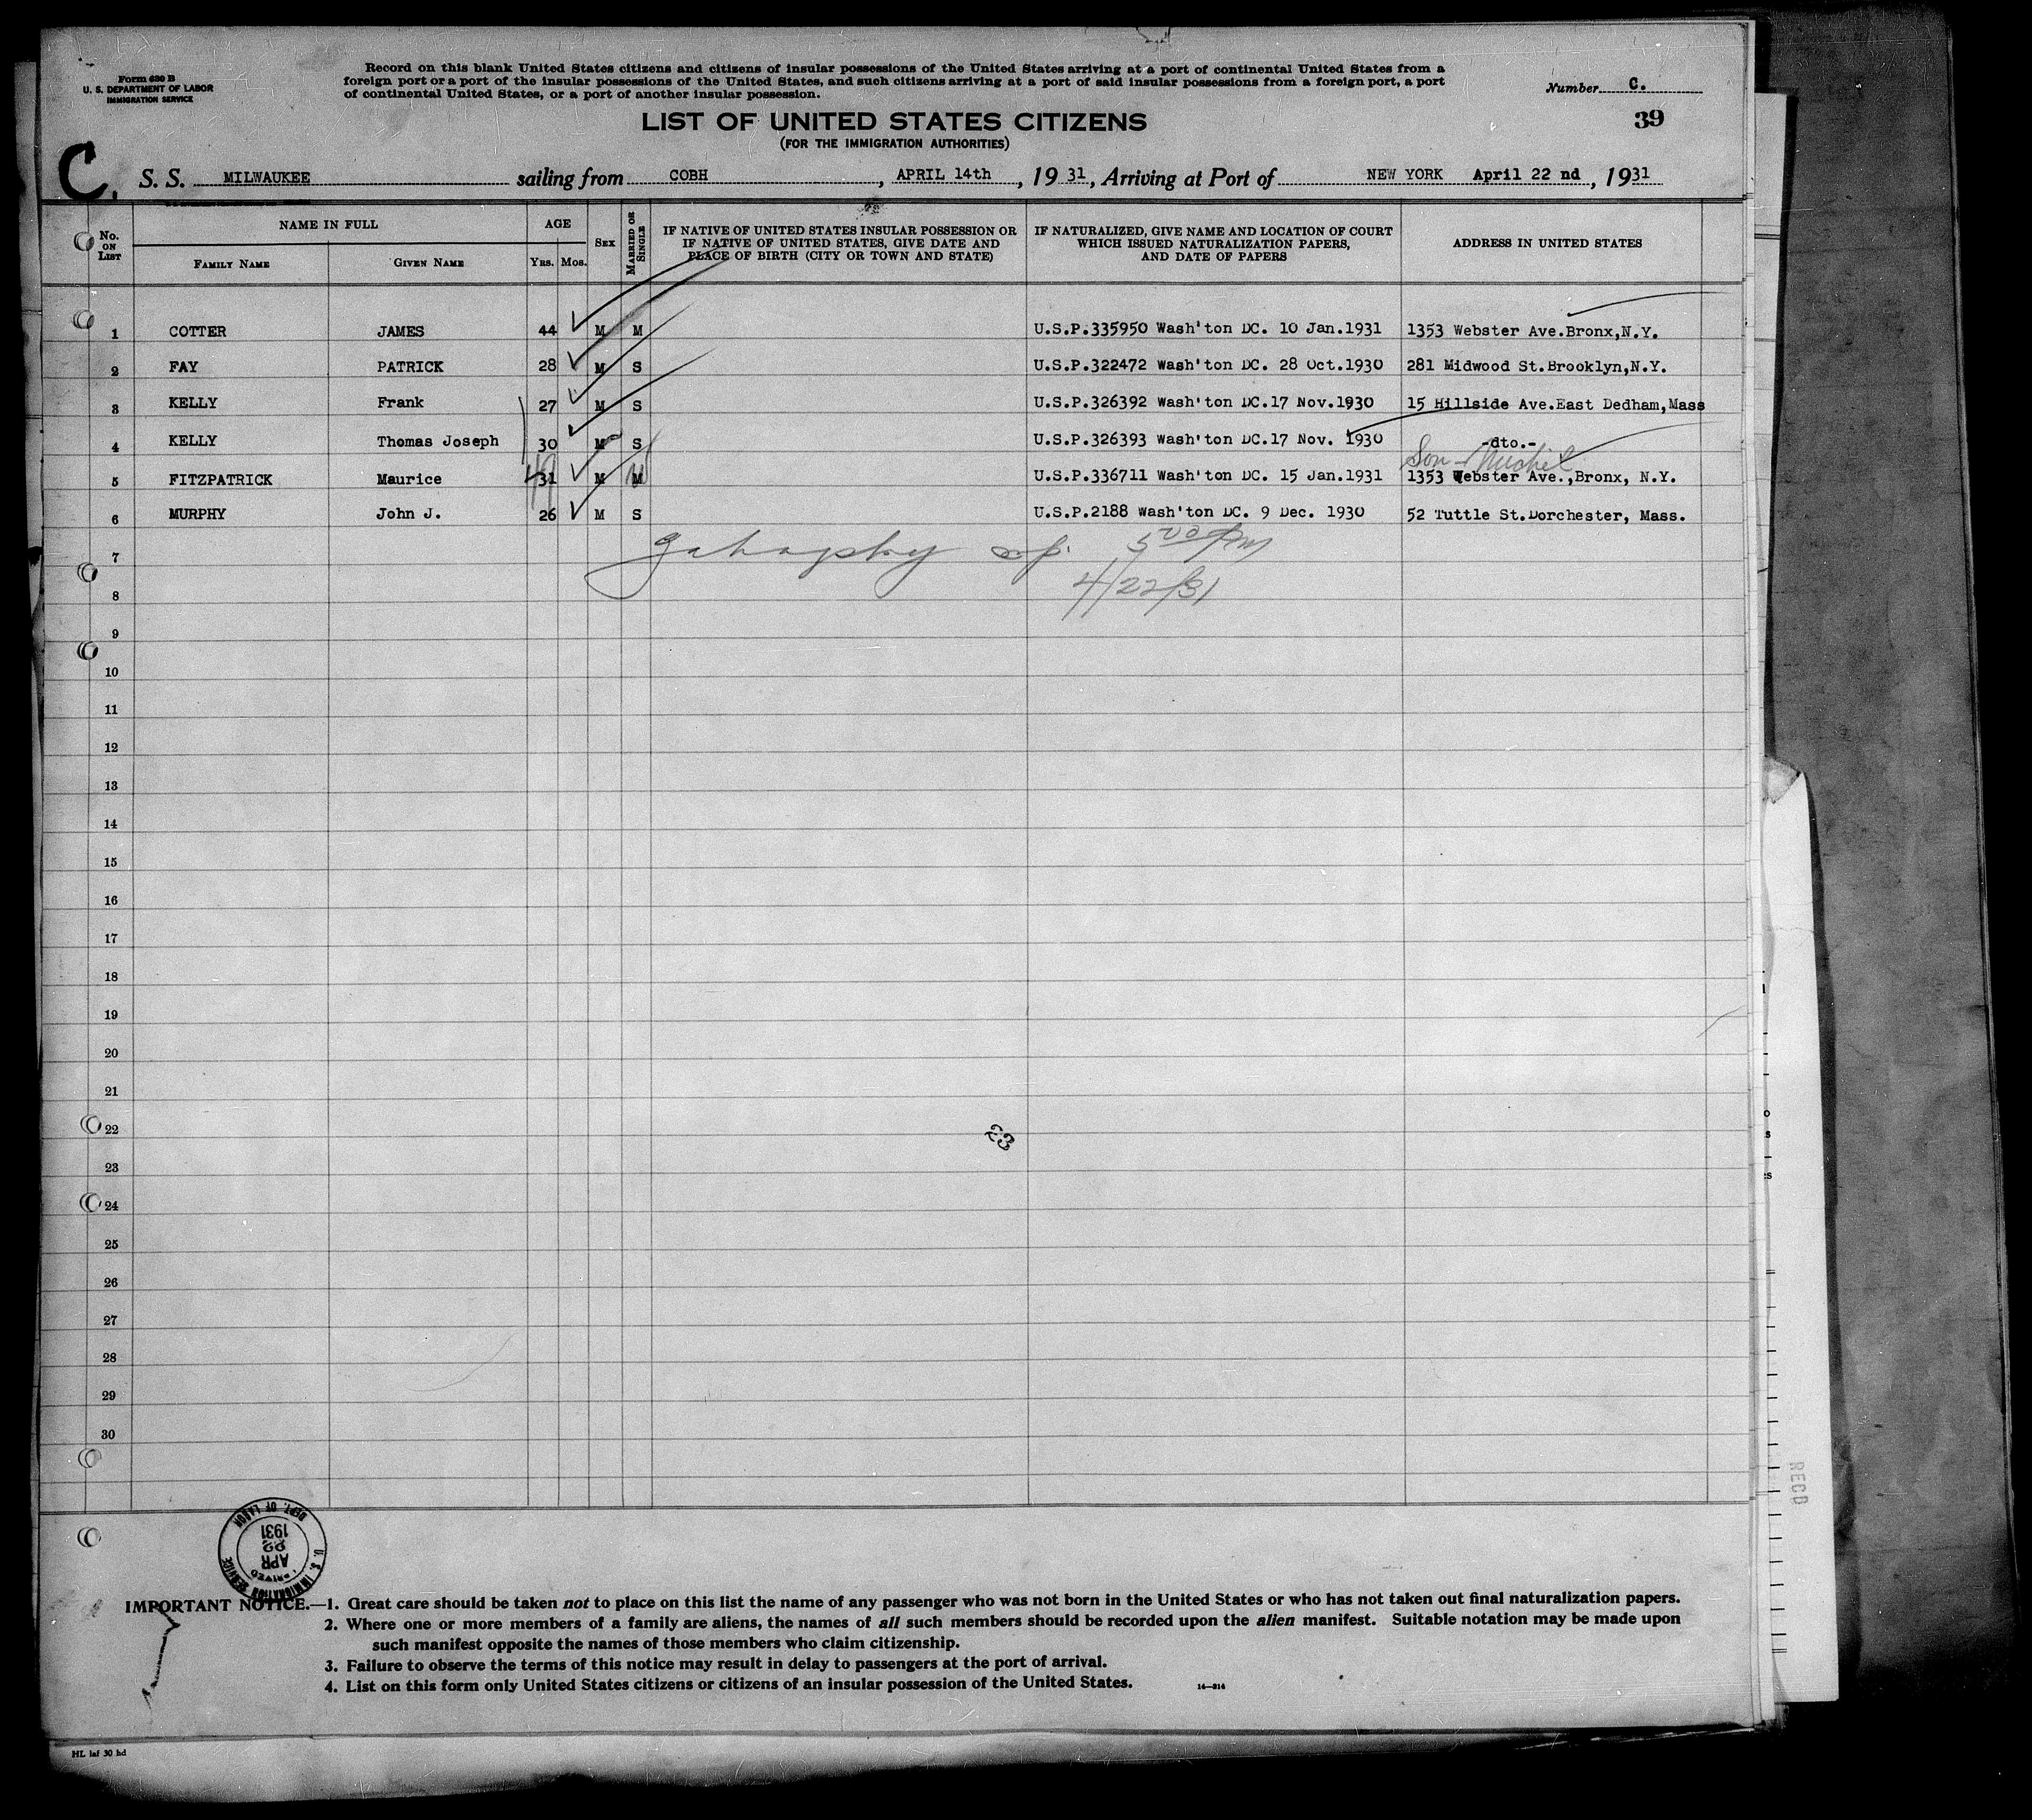 Form 630 B
U. S. DEPARTMENT OF LABOR
IMMIGRATION SERVICE
Record on this blank United States citizens and citizens of insular possessions of the United States arriving at a port of continental United States from a
foreign port or a port of the insular possessions of the United States, and such citizens arriving at a port of said insular possessions from a foreign port, a port
of continental United States, or a port of another insular possession.
Number C.
39
LIST OF UNITED STATES CITIZENS
(FOR THE IMMIGRATION AUTHORITIES)
C. S. S. MILWAUKEE sailing from COBH, APRIL 14th, 1931, Arriving at Port of NEW YORK April 22 nd, 1931
No. ON LIST
NAME IN FULL
FAMILY NAME
GIVEN NAME
AGE
YRS. MOS.
SEX
MARRIED OR SINGLE
IF NATIVE OF UNITED STATES INSULAR POSSESSION OR
IF NATIVE OF UNITED STATES, GIVE DATE AND
PLACE OF BIRTH (CITY OR TOWN AND STATE)
IF NATURALIZED, GIVE NAME AND LOCATION OF COURT
WHICH ISSUED NATURALIZATION PAPERS,
AND DATE OF PAPERS
ADDRESS IN UNITED STATES
1 COTTER JAMES 44 M M U.S.P.335950 Wash'ton DC. 10 Jan.1931 1353 Webster Ave.Bronx,N.Y.
2 FAY PATRICK 28 M S U.S.P.322472 Wash'ton DC. 28 Oct.1930 281 Midwood St.Brooklyn,N.Y.
3 KELLY Frank 27 M S U.S.P.326392 Wash'ton DC.17 Nov.1930 15 Hillside Ave.East Dedham,Mass
4 KELLY Thomas Joseph 30 M S U.S.P.326393 Wash'ton DC.17 Nov. 1930 -dto.-
Son - Michel
5 FITZPATRICK Maurice 31 49 M M U.S.P.336711 Wash'ton DC. 15 Jan.1931 1353 Webster Ave.,Bronx, N.Y.
6 MURPHY John J. 26 M S U.S.P.2188 Wash'ton DC. 9 Dec. 1930 52 Tuttle St.Dorchester, Mass.
7
5 00 PM
8
4/22/31
9
10
11
12
13
14
15
16
17
18
19
20
21
22
23
23
24
25
26
27
28
29
30
U. S. IMMIGRATION SERVICE
APR
22
1931
DEPT. OF LABOR
IMPORTANT NOTICE.—1. Great care should be taken not to place on this list the name of any passenger who was not born in the United States or who has not taken out final naturalization papers.
2. Where one or more members of a family are aliens, the names of all such members should be recorded upon the alien manifest. Suitable notation may be made upon
such manifest opposite the names of those members who claim citizenship.
3. Failure to observe the terms of this notice may result in delay to passengers at the port of arrival.
4. List on this form only United States citizens or citizens of an insular possession of the United States.
14—214
HL laf 30 hd
RECD